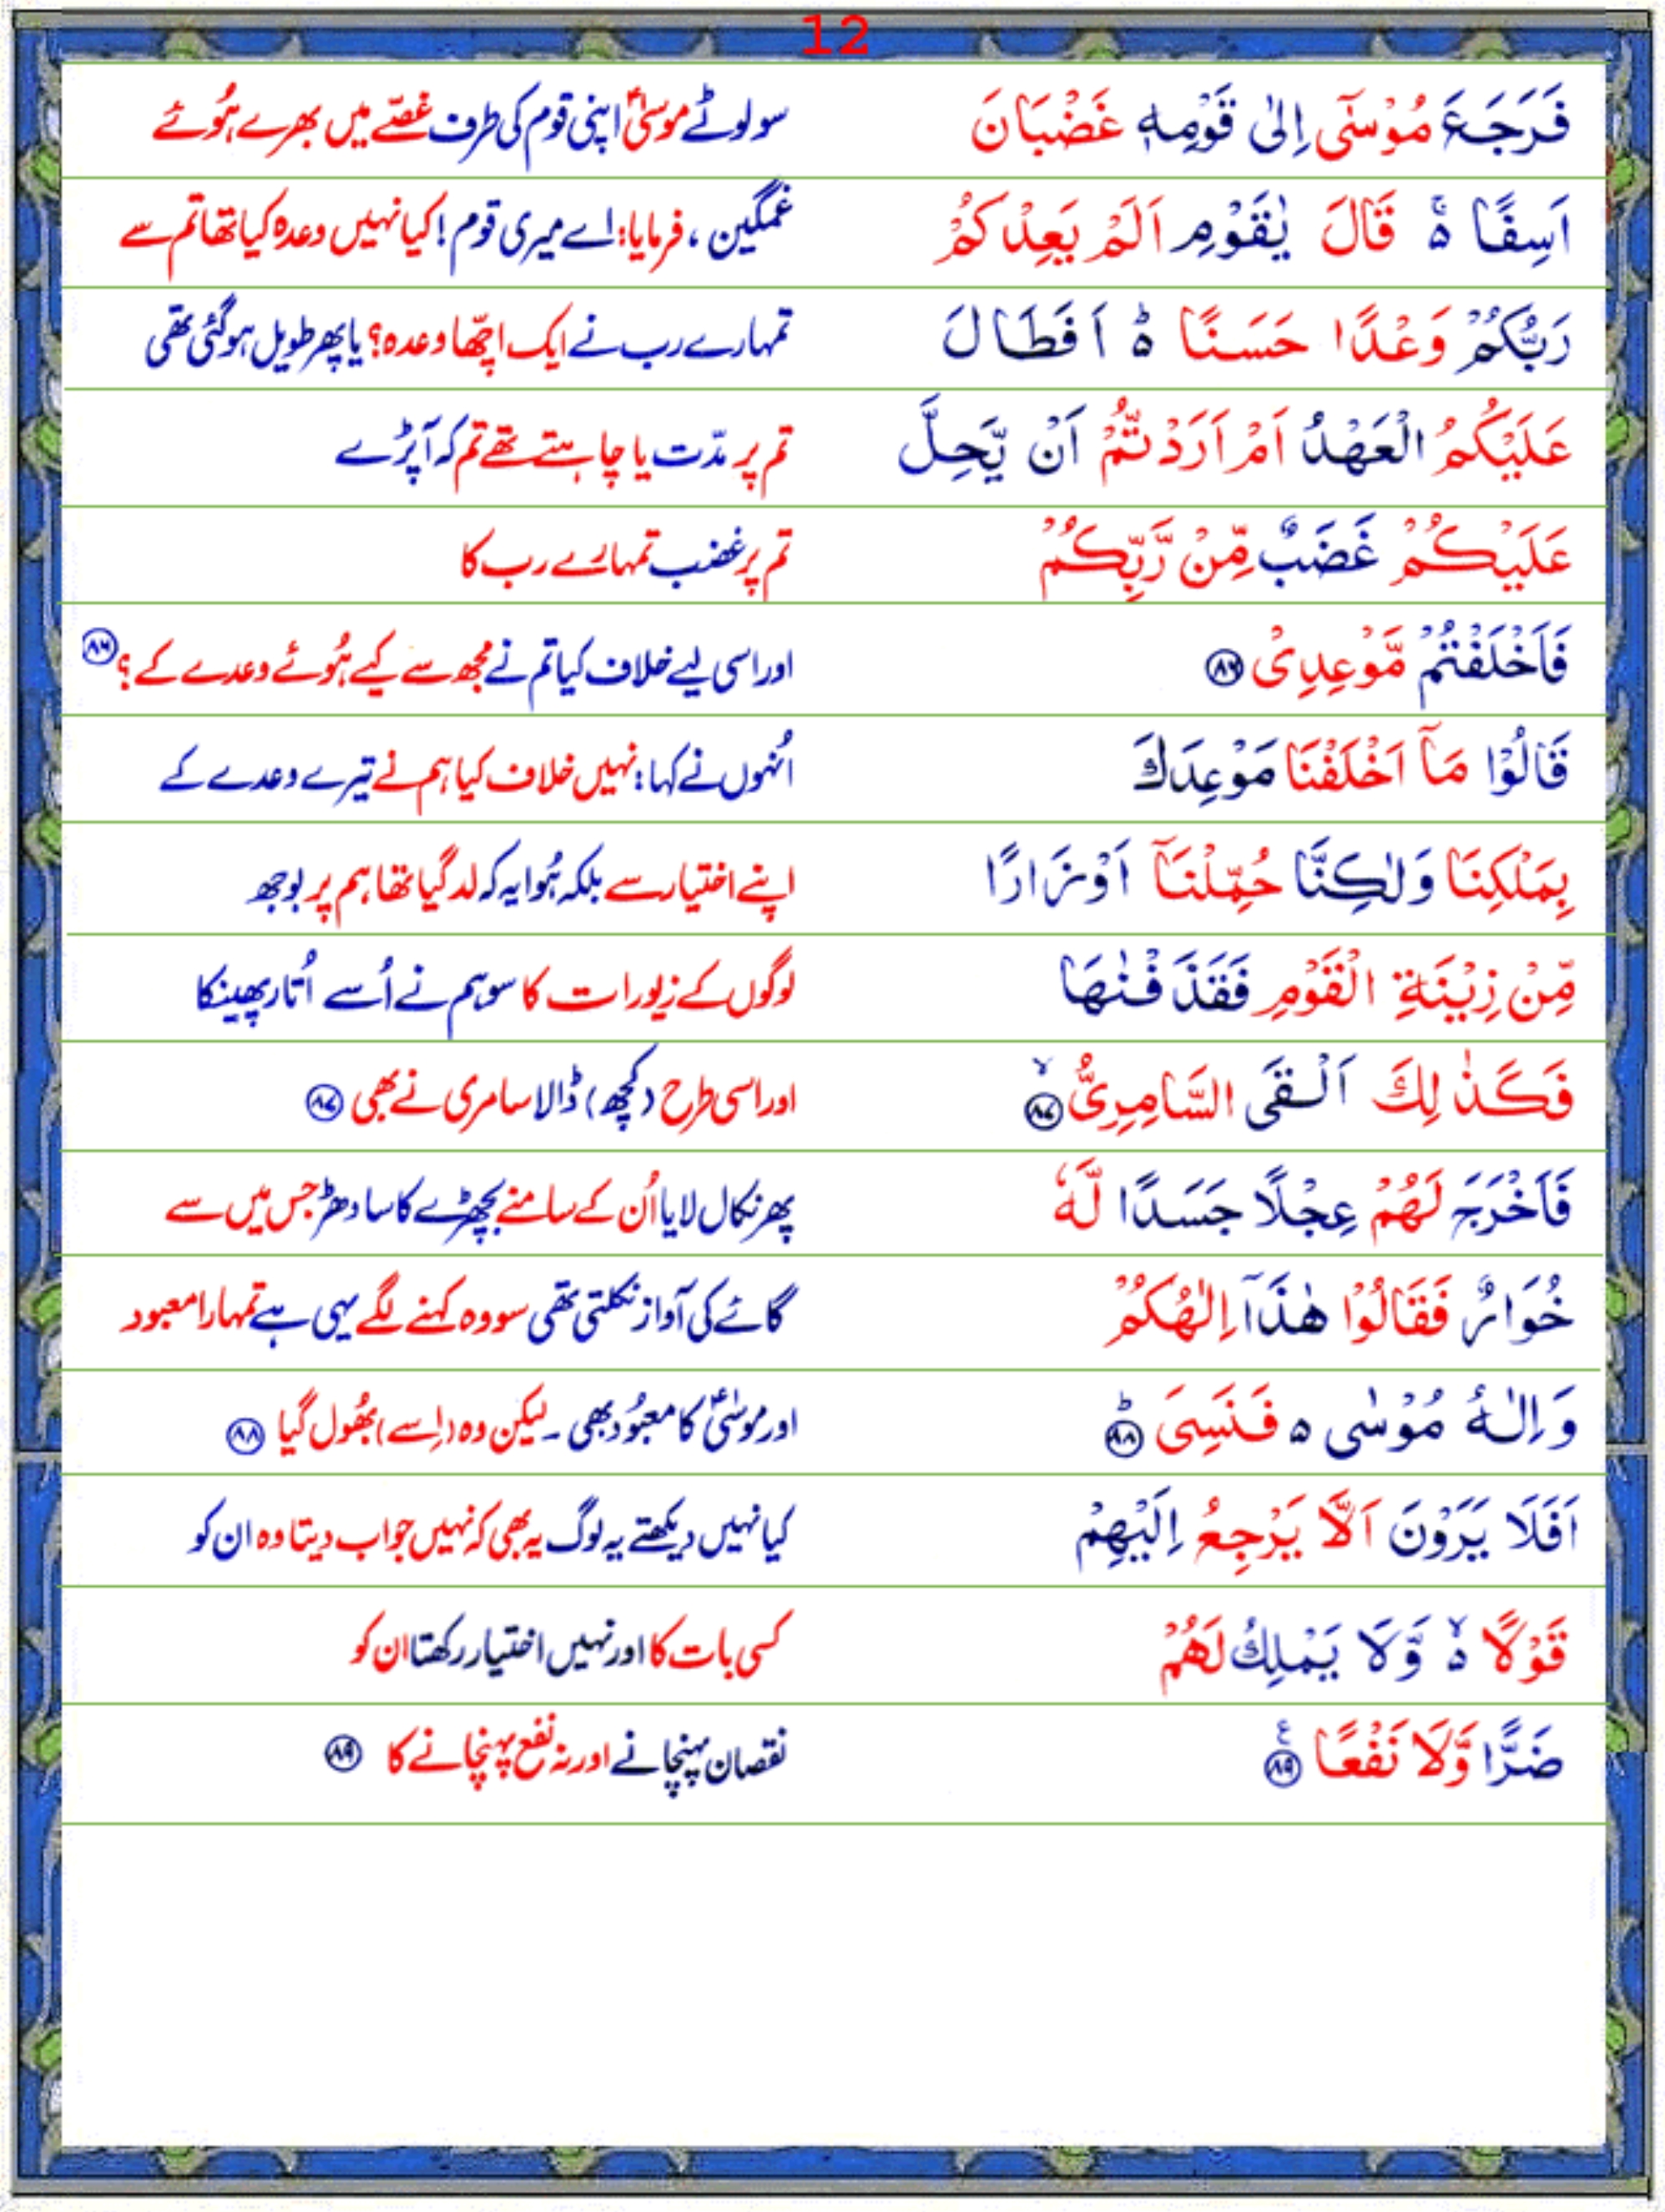 12
فَرَجَعَ مُوْسٰٓى اِلٰى قَوْمِهٖ غَضْبَانَ سو لوٹے موسیٰؑ اپنی قوم کی طرف غصّے میں بھرے ہُوئے
اَسِفًا ۵ۚ قَالَ يٰقَوْمِ اَلَمْ يَعِدْكُمْ غمگین، فرمایا: اے میری قوم! کیا نہیں وعدہ کیا تھا تم سے
رَبُّكُمْ وَعْدًا حَسَنًا ۵ؕ اَفَطَالَ تمہارے رب نے ایک اچھّا وعدہ؟ یا پھر طویل ہوگئی تھی
عَلَيْكُمُ الْعَهْدُ اَمْ اَرَدْتُّمْ اَنْ يَّحِلَّ تم پر مدّت یا چاہتے تھے تم کہ آ پڑے
عَلَيْكُمْ غَضَبٌ مِّنْ رَّبِّكُمْ تم پر غضب تمہارے رب کا
فَاَخْلَفْتُمْ مَّوْعِدِىْ ۸۶ اور اسی لیے خلاف کیا تم نے مجھ سے کیے ہُوئے وعدے کے؟ ۸۶
قَالُوْا مَآ اَخْلَفْنَا مَوْعِدَكَ اُنہوں نے کہا: نہیں خلاف کیا ہم نے تیرے وعدے کے
بِمَلْكِنَا وَلٰكِنَّا حُمِّلْنَآ اَوْزَارًا اپنے اختیار سے بلکہ ہُوا یہ کہ لد گیا تھا ہم پر بوجھ
مِّنْ زِيْنَةِ الْقَوْمِ فَقَذَفْنٰهَا لوگوں کے زیورات کا سو ہم نے اُسے اُتار پھینکا
فَكَذٰلِكَ اَلْقَى السَّامِرِىُّ ۙ۸۷ اور اسی طرح (کچھ) ڈالا سامری نے بھی ۸۷
فَاَخْرَجَ لَهُمْ عِجْلًا جَسَدًا لَّهٗ پھر نکال لایا اُن کے سامنے بچھڑے کا سا دھڑ جس میں سے
خُوَارٌ فَقَالُوْا هٰذَآ اِلٰهُكُمْ گائے کی آواز نکلتی تھی سو وہ کہنے لگے یہی ہے تمہارا معبود
وَاِلٰهُ مُوْسٰى ۵ فَنَسِىَ ؕ۸۸ اور موسٰیؑ کا معبُود بھی ۔ لیکن وہ (اِسے) بھُول گیا ۸۸
اَفَلَا يَرَوْنَ اَلَّا يَرْجِعُ اِلَيْهِمْ کیا نہیں دیکھتے یہ لوگ یہ بھی کہ نہیں جواب دیتا وہ ان کو
قَوْلًا ۵ۙ وَّلَا يَمْلِكُ لَهُمْ کسی بات کا اور نہیں اختیار رکھتا ان کو
ضَرًّا وَّلَا نَفْعًا ۸۹ع نقصان پہنچانے اور نہ نفع پہنچانے کا ۸۹